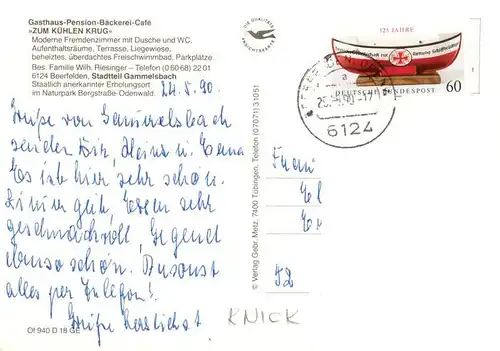 Gasthaus-Pension-Bäckerei-Café
»ZUM KÜHLEN KRUG«
Moderne Fremdenzimmer mit Dusche und WC,
Aufenthaltsräume, Terrasse, Liegewiese,
beheiztes, überdachtes Freischwimmbad, Parkplätze
Bes. Familie Wilh. Flesinger – Telefon (0 60 68) 22 01
6124 Beerfelden, Stadtteil Gammelsbach
Staatlich anerkannter Erholungsort
im Naturpark Bergstraße-Odenwald.
24.5.90.
Grüße von Gammelsbach
senden Dir, Heinz u. Erna
Es ist hier sehr schön.
Zimmer gut, Essen sehr
geschmackvoll, Gegend
ebenso schön. Ansonst
alles per Telefon!
Grüße herzlichst
Of 940 D 18 GE
DIE QUALITÄTS
ANSICHTSKARTE
© Verlag Gebr. Metz, 7400 Tübingen, Telefon (07071) 31051
125 JAHRE
Deutsche Gesellschaft zur Rettung Schiffbrüchiger
60
DEUTSCHE BUNDESPOST
a
-17
6124
Frau
52
KNICK